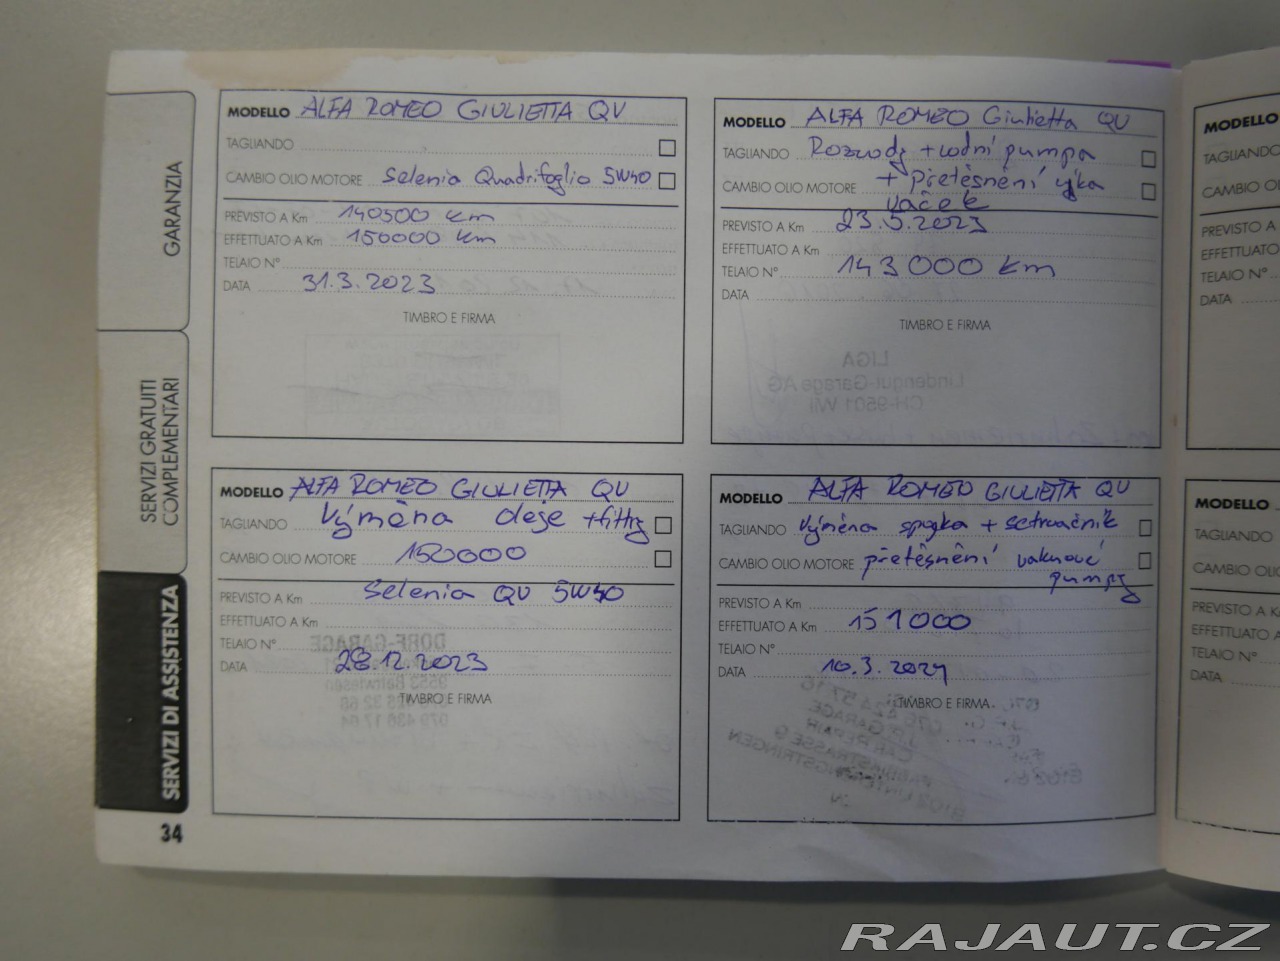 GARANZIA
SERVIZI GRATUITI
COMPLEMENTARI
SERVIZI DI ASSISTENZA
34
MODELLO ALFA ROMEO GIULIETTA QV
TAGLIANDO
CAMBIO OLIO MOTORE Selenia Quadrifoglio 5W40
PREVISTO A Km 140500 km
EFFETTUATO A Km 150000 km
TELAIO N°
DATA 31.3.2023
TIMBRO E FIRMA
MODELLO ALFA ROMEO Giulietta QV
TAGLIANDO Rozvody + vodní pumpa
CAMBIO OLIO MOTORE + přetěsnění víka
vaček
PREVISTO A Km 23.5.2023
EFFETTUATO A Km
TELAIO N° 143000 km
DATA
TIMBRO E FIRMA
LIGA
Lindengut-Garage AG
CH-9501 Wil
MODELLO ALFA ROMEO GIULIETTA QV
TAGLIANDO Výměna oleje + filtry
CAMBIO OLIO MOTORE 150000
Selenia QV 5W40
PREVISTO A Km
EFFETTUATO A Km
TELAIO N°
DATA 28.12.2023
TIMBRO E FIRMA
DORF-GARAGE
MODELLO ALFA ROMEO GIULIETTA QV
TAGLIANDO Výměna spojka + setrvačník
CAMBIO OLIO MOTORE přetěsnění vakuové
pumpy
PREVISTO A Km
EFFETTUATO A Km 151000
TELAIO N°
DATA 10.3.2024
TIMBRO E FIRMA
MODELLO
TAGLIANDO
CAMBIO OL
PREVISTO A
EFFETTUATO
TELAIO N°
DATA
MODELLO
TAGLIANDO
CAMBIO OL
PREVISTO A K
EFFETTUATO A
TELAIO N°
DATA
RAJAUT.CZ